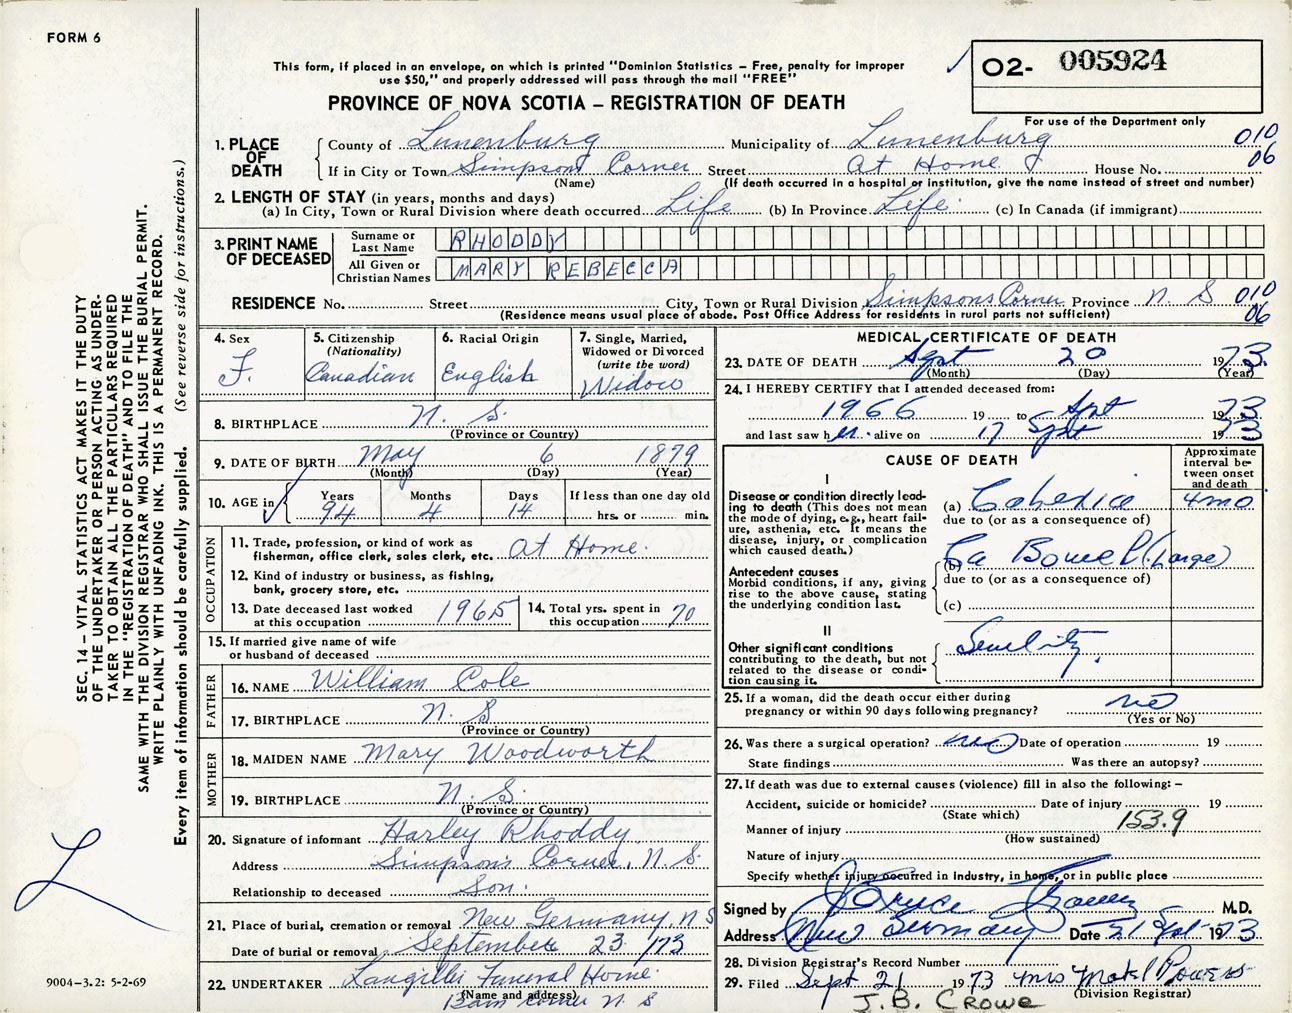 FORM 6
This form, if placed in an envelope, on which is printed "Dominion Statistics – Free, penalty for improper
use $50," and properly addressed will pass through the mail "FREE"
PROVINCE OF NOVA SCOTIA – REGISTRATION OF DEATH
O2- 005924
For use of the Department only
1. PLACE OF DEATH
County of Lunenburg Municipality of Lunenburg 010
If in City or Town Simpson Corner Street At Home House No. 06
(Name) (If death occurred in a hospital or institution, give the name instead of street and number)
2. LENGTH OF STAY (in years, months and days)
(a) In City, Town or Rural Division where death occurred Life (b) In Province Life (c) In Canada (if immigrant)
3. PRINT NAME OF DECEASED
Surname or Last Name RHODDY
All Given or Christian Names MARY REBECCA
RESIDENCE No. Street City, Town or Rural Division Simpsons Corner Province N. S 010
(Residence means usual place of abode. Post Office Address for residents in rural parts not sufficient) 06
4. Sex F.
5. Citizenship (Nationality) Canadian
6. Racial Origin English
7. Single, Married, Widowed or Divorced (write the word) Widow
8. BIRTHPLACE N. S.
(Province or Country)
9. DATE OF BIRTH May 6 1879
(Month) (Day) (Year)
10. AGE in Years 94 Months 4 Days 14 If less than one day old hrs. or min.
OCCUPATION
11. Trade, profession, or kind of work as
fisherman, office clerk, sales clerk, etc. At Home.
12. Kind of industry or business, as fishing,
bank, grocery store, etc.
13. Date deceased last worked
at this occupation 1965
14. Total yrs. spent in
this occupation 70
15. If married give name of wife
or husband of deceased
FATHER
16. NAME William Cole
17. BIRTHPLACE N. S
(Province or Country)
MOTHER
18. MAIDEN NAME Mary Woodworth
19. BIRTHPLACE N. S.
(Province or Country)
20. Signature of informant Harley Rhoddy
Address Simpson's Corner, N. S.
Relationship to deceased Son.
21. Place of burial, cremation or removal New Germany, N S
Date of burial or removal September 23 /73
22. UNDERTAKER Langilles Funeral Home.
(Name and address)
Corner N S
MEDICAL CERTIFICATE OF DEATH
23. DATE OF DEATH Sept 20 1973.
(Month) (Day) (Year)
24. I HEREBY CERTIFY that I attended deceased from:
1966 19 to Spt 1973
and last saw her alive on 17 Sept 1973
CAUSE OF DEATH
Approximate interval between onset and death
I
Disease or condition directly lead-
ing to death (This does not mean
the mode of dying, e.g., heart fail-
ure, asthenia, etc. It means the
disease, injury, or complication
which caused death.)
(a) Cahexia 4 mo
due to (or as a consequence of)
Antecedent causes
Morbid conditions, if any, giving
rise to the above cause, stating
the underlying condition last.
(b) Ca Bowel (Large)
due to (or as a consequence of)
(c)
II
Other significant conditions
contributing to the death, but not
related to the disease or condi-
tion causing it.
Senility.
25. If a woman, did the death occur either during
pregnancy or within 90 days following pregnancy? no
(Yes or No)
26. Was there a surgical operation? no Date of operation 19
State findings Was there an autopsy?
27. If death was due to external causes (violence) fill in also the following: –
Accident, suicide or homicide? Date of injury 19
(State which) 153.9
Manner of injury
(How sustained)
Nature of injury
Specify whether injury occurred in industry, in home, or in public place
Signed by M.D.
Address New Germany Date 21 Spt 1973
28. Division Registrar's Record Number
29. Filed Sept 21 1973 Mrs Powers
(Division Registrar)
J. B. CROWE
SEC. 14 – VITAL STATISTICS ACT MAKES IT THE DUTY
OF THE UNDERTAKER OR PERSON ACTING AS UNDER-
TAKER TO OBTAIN ALL THE PARTICULARS REQUIRED
IN THE "REGISTRATION OF DEATH" AND TO FILE THE
SAME WITH THE DIVISION REGISTRAR WHO SHALL ISSUE THE BURIAL PERMIT.
WRITE PLAINLY WITH UNFADING INK. THIS IS A PERMANENT RECORD.
Every item of information should be carefully supplied. (See reverse side for instructions.)
L
9004-3.2: 5-2-69